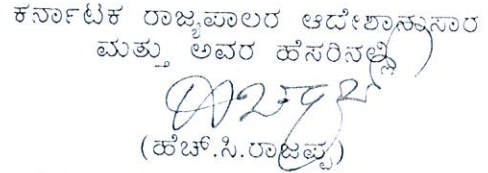 ಕರ್ನಾಟಕ ರಾಜ್ಯಪಾಲರ ಆದೇಶಾನುಸಾರ
ಮತ್ತು ಅವರ ಹೆಸರಿನಲ್ಲಿ
(ಹೆಚ್.ಸಿ.ರಾಜಪ್ಪ)